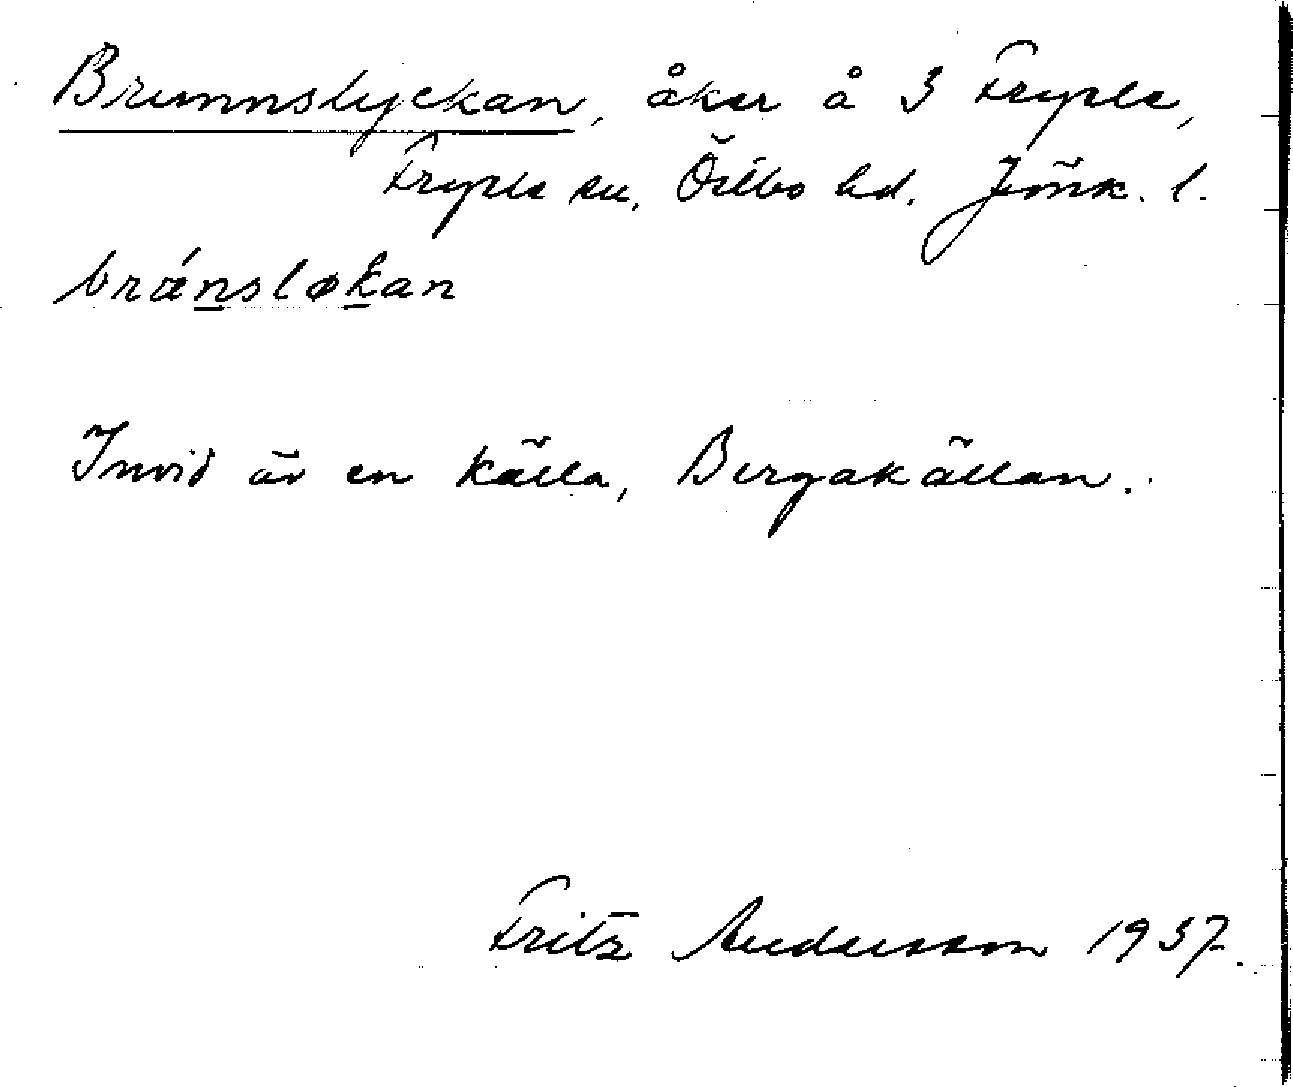 Brunnslyckan, åker å 3 Fryele,
Fryele sn, Östbo hd. Jönk. l.
brǽnsløkan
Invid är en källa, Bergakällan.
Fritz Andersson 1937.